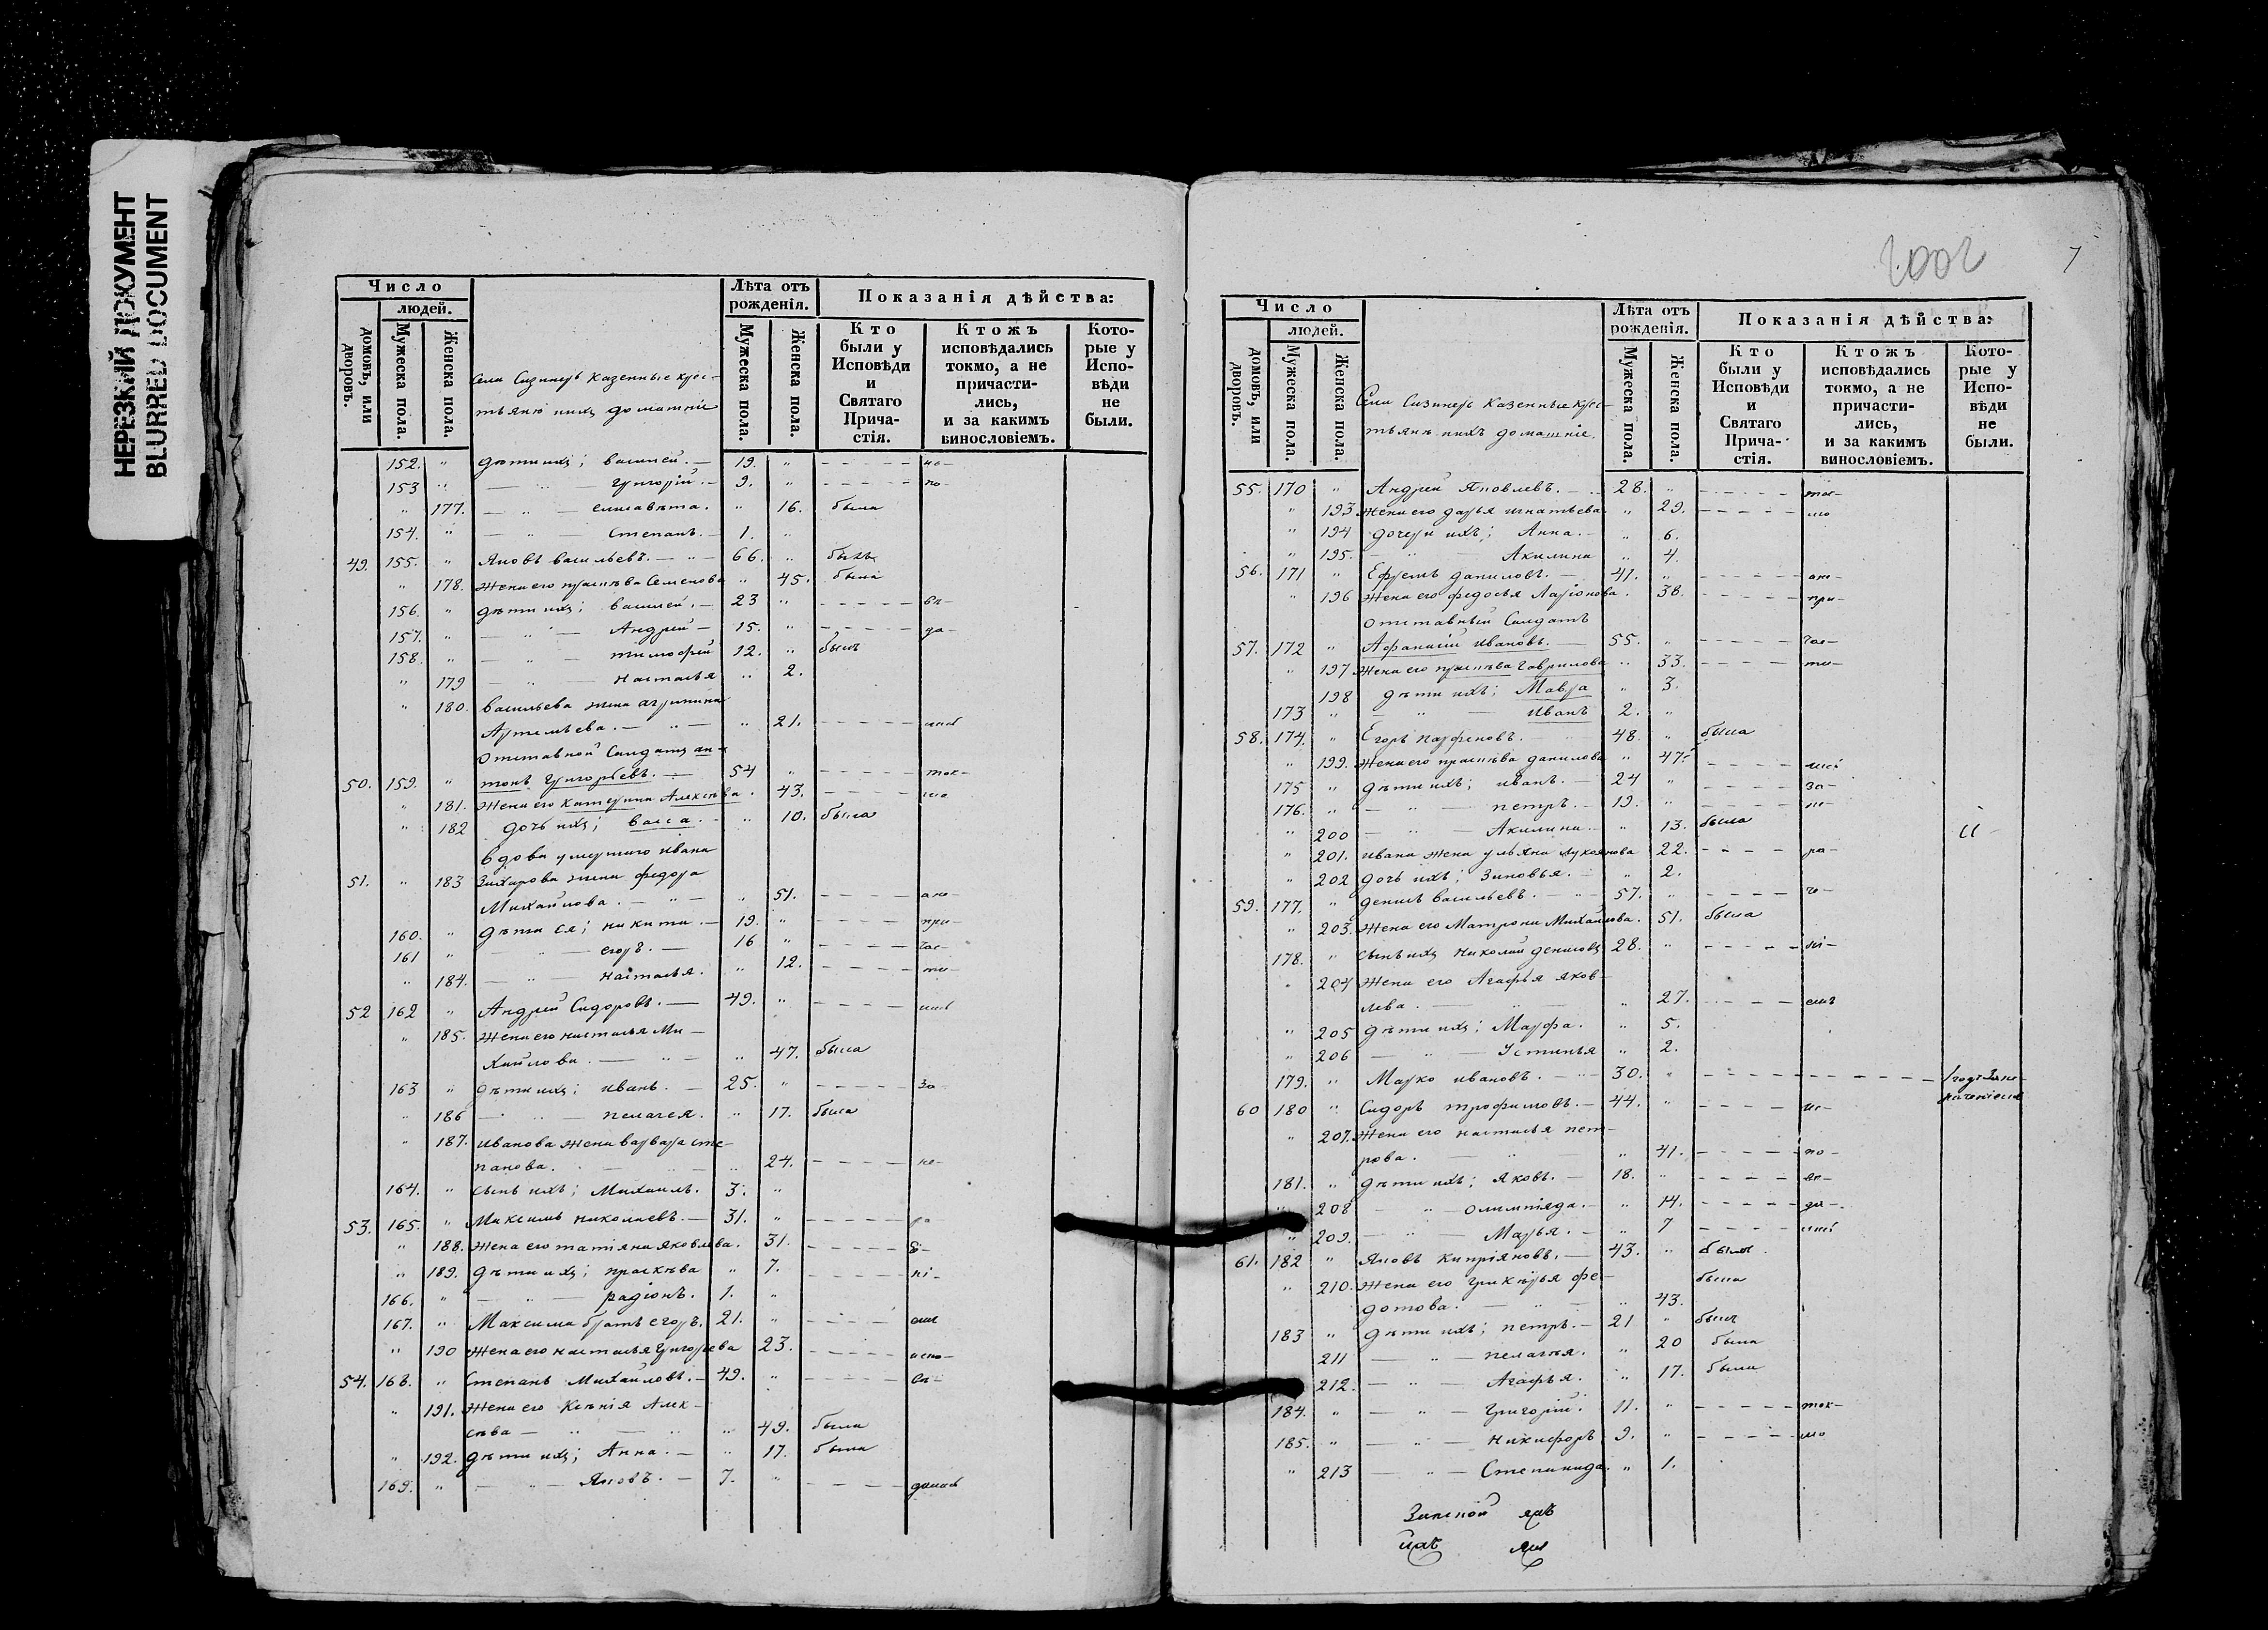 НЕРЕЗКИЙ ДОКУМЕНТ
BLURRED DOCUMENT
Число
людей.
домовъ, или дворовъ.
Мужеска пола.
Женска пола.
Села Сизинеръ казенные крес-
тьяне ихъ домашніе
Лѣта отъ рожденія.
Мужеска пола.
Женска пола.
Показанія дѣйства:
Кто были у Исповѣди и Святаго Прича-стія.
Ктожъ исповѣдались токмо, а не причасти-лись, и за какимъ винословіемъ.
Кото-рые у Испо-вѣди не были.
152. " дѣти ихъ; василей. — 19. " - - - - - ис-
153 " — " — Григорій. — 9. " - - - - - по-
" 177. — " — елисавета. " 16. была
154. " — " — Степанъ. — 1. "
49. 155. " Яковъ васильевъ. — " — 66. " былъ
" 178. Жена его прасковя Семенова " 45. была
156. " дѣти ихъ; василей. — 23 " - - - - - вѣ-
157. " — " — Андрей — 15. " - - - - - да-
158. " — " — тимофей 12. " былъ
" 179 — " — Настасья " 2.
" 180. васильева жена агрипина
Артемьева. — " — " 21. - - - - -
отставной Солдатъ ан-
50. 159. " тонъ Григорьевъ. — 54 " - - - - - ток-
" 181. Жена его катерина Алексѣева. 43. - - - - - мо
" 182 дочь ихъ; васса. — " 10. была
вдова умершаго ивана
51. " 183 Захарова жена федора
Михайлова. — " — " 51. - - - - - а не
160. " дѣти ея; никита. — 19. " - - - - - при-
161 " — егоръ. — 16 " - - - - - час-
" 184. — " — настасья. " 12. - - - - - ти-
52 162 " Андрей Сидоровъ. — 49. " - - - - - лись
" 185. Жена его настасья Ми-
хайлова. — " — " 47. была
163 " дѣти ихъ; иванъ. — 25. " - - - - - за-
" 186 — " — пелагея. " 17. была
" 187. иванова жена варвара сте-
панова. — " — " 24. - - - - - не-
164. " сынъ ихъ; Михаилъ. 3. "
53. 165. " Максимъ николаевъ. — 31. " - - - - - ра-
" 188. Жена его татіяна яковлева. 31. - - - - - ѣ-
" 189. дѣти ихъ; прасковя " 7. - - - - - ні-
166. " — " — радіонъ. 1. "
167. " Максима братъ егоръ. 21. " - - - - - емъ
" 190 Жена его настасья Григорьева 23. - - - - - испо-
54. 168. " Степанъ Михайловъ. — 49. " - - - - - вѣ-
" 191. Жена его Ксенія Алек-
сѣева — " — " 49. была
" 192. дѣти ихъ; Анна. — " 17. была
169. " — " — Яковъ. — 7. " - - - - - дались
2002
7
Число
людей.
домовъ, или дворовъ.
Мужеска пола.
Женска пола.
Села Сизинеръ казенные крес-
тьяне ихъ домашніе.
Лѣта отъ рожденія.
Мужеска пола.
Женска пола.
Показанія дѣйства:
Кто были у Исповѣди и Святаго Прича-стія.
Ктожъ исповѣдались токмо, а не причасти-лись, и за какимъ винословіемъ.
Кото-рые у Испо-вѣди не были.
55. 170 " Андрей Яковлевъ. — 28. " - - - - - ток-
" 193 жена его дарья игнатьева " 29. - - - - - мо
" 194 дочери ихъ; Анна. — " 6.
" 195. — Акилина " 4.
56. 171 " Ефремъ даниловъ. — 41. " - - - - - а не
" 196 Жена его федосья Ларіонова. 38. - - - - - при-
отставный Солдатъ
57. 172 " Афанасій ивановъ. — 55. " - - - - - час-
" 197 Жена его прасковя Гаврилова " 33. - - - - ти-
198 дѣти ихъ; Мавра " 3.
173 " — " — иванъ 2. "
58. 174. " Егоръ парфеновъ. — 48. " была
" 199. Жена его прасковя данилова " 47. - - - - лись
175 " дѣти ихъ; иванъ. — 24 " - - - - за-
176. " — " — петръ. — 19. " - - - - не-
" 200 — " — Акилина. — " 13. была
" 201. ивана жена ульяна лукоянова 22. - - - - ра-
" 202 дочь ихъ; Зиновья. — " 2.
59. 177. " денисъ васильевъ. — " — 57. " - - - -
" 203. Жена его Матрона Михайлова. 51. была
178. " сынъ ихъ николай денисовъ 28. " - - - - - ні-
" 204 Жена его Агафья яков-
лева. — " — " 27. - - - - емъ
" 205 дѣти ихъ; Марфа. " 5.
" 206 — " — Устинья " 2.
179. " Марко ивановъ. — " — 30. " - - - - - - - - - -
60 180 " Сидоръ трофимовъ. — 44. " - - - - ис-
" 207. Жена его настасья пет-
рова. — " — " 41. - - - - - по-
181. " дѣти ихъ; яковъ. — 18. " - - - - - вѣ-
" 208 — " — олимпіяда. — " 14. - - - - - да-
" 209. — " — Марья. — " 7 - - - - лись
61. 182 " Яковъ кипріяновъ. — 43. " былъ.
" 210. Жена его гликерья фе-
дотова. — " — " 43. была
183 " дѣти ихъ; петръ. — 21 " былъ
211 — " — пелагея. " 20 была
212. — " — Агафья. " 17. была
184. " — " — Григорій. 11. " - - - - - ток-
185. " — " — никифоръ 9. " - - - - - мо
" 213 — " — Степанида. " 1.